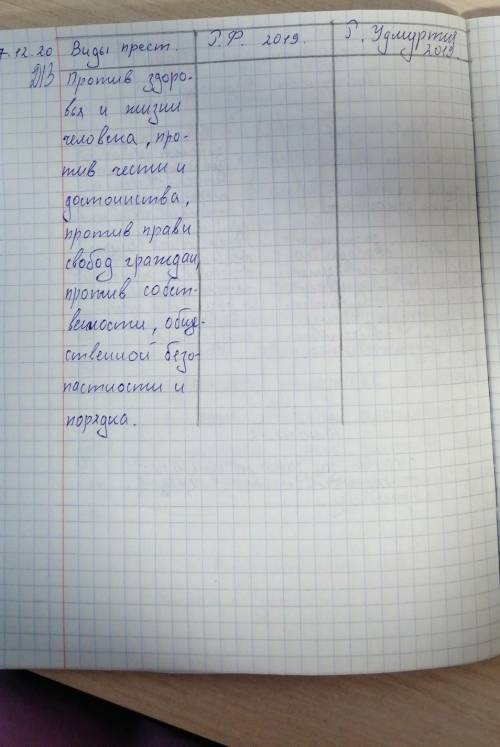 7.12.20 Виды прест. Р.Ф. 2019. Р. Удмуртия 2019.
ДЗ Против здоро-
вья и жизни
человека, про-
тив чести и
достоинства,
против прав и
свобод граждан,
против собст-
венности, общ-
ственной безо-
пастности и
порядка.